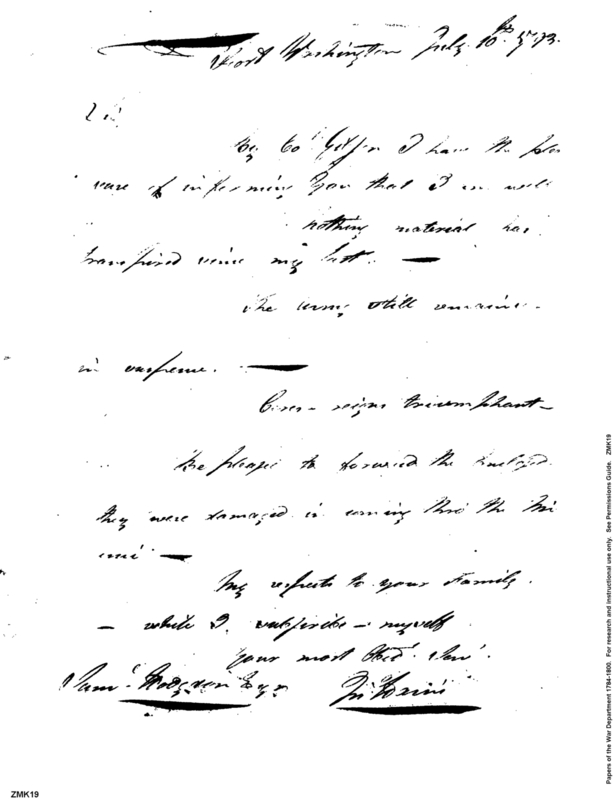 Fort Washington July 10th 1793.
Sir
By Col Gibson I have the plea
sure of informing You that I am well
nothing material has
transpired since my last. —
The army still remains -
in suspense. —
Ceres - reigns triumphant -
Be pleased to forward the Enclosed.
they were damaged in coming thro' the Mi
ami —
My respects to your Family.
- while I subscribe - myself
Your most Obed. Serv.
Saml. Hodgdon Esqr
Papers of the War Department 1784-1800. For research and instructional use only. See Permissions Guide. ZMK19
ZMK19